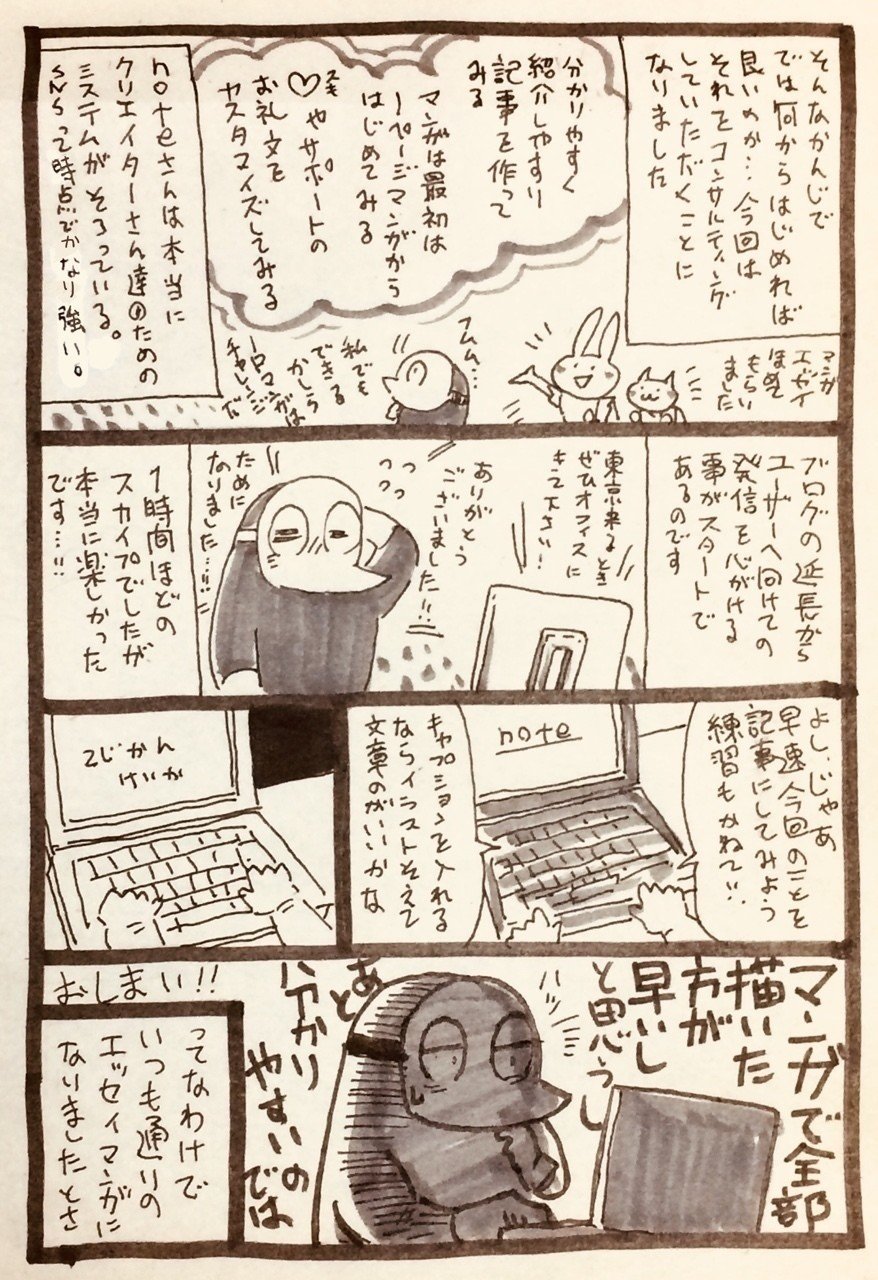 そんなかんじで
では何からはじめれば
良いのか…今回は
それをコンサルティング
していただくことに
なりました
分かりやすく
紹介しやすい
記事を作って
みる
マンガは最初は
1ページマンガから
はじめてみる
スキ
♡やサポートの
お礼文を
カスタマイズしてみる
noteさんは本当に
クリエイターさん達のための
システムがそろっている。
SNSって時点でかなり強い。
マンガ
エッセイ
ほめて
もらい
ました
フムム…
私でも
できる
かしら
1Pマンガは
チャレンジ
だ
ブログの延長から
ユーザーへ向けての
発信を心がける
事がスタートで
あるのです
東京来るとき
ぜひオフィスに
きて下さい!
ありがとう
ございました!!
ために
なりました…!!
1時間ほどの
スカイプでしたが
本当に楽しかった
です…!!
よし、じゃあ
早速今回のことを
記事にしてみよう
練習もかねて!!
note
キャプションを入れる
ならイラストそえて
文章のがいいかな
2じかん
けいか
マンガで全部
描いた
方が
早いし
と思うし
ハッ
あと
分かり
やすいの
では
おしまい!!
ってなわけで
いつも通りの
エッセイマンガに
なりましたとさ